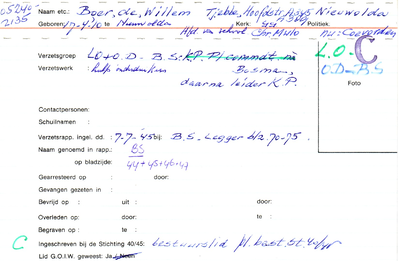 Naam etc.: Boer, de, Willem Tjebbe, Hoofdstr. Nieuwolda
Geboren: 17.4.10 te Nieuwolda Kerk: Politiek:
Hfd. van school Chr. Mulo nu: Coevorden
Verzetsgroep LO + O.D. - B.S. - K.P. Pl. commdt. na
Verzetswerk Hulp onderduikers Bosman,
daarna leider K.P.
L.O.-C
O.D.-B.S
Foto
Contactpersonen:
Schuilnamen :
Verzetsrapp. ingel. dd. : 7-7-45 bij: B.S. Legger blz. 70-75.
Naam genoemd in rapp.: BS
op bladzijde: 44+45+46+47
Gearresteerd op : door:
Gevangen gezeten in :
Bevrijd op : uit : door:
Overleden op : door: te :
Begraven op : te :
C Ingeschreven bij de Stichting 40/45: bestuurslid Pl. best. St. 40/45
Lid G.O.I.W. geweest: Ja / Neen